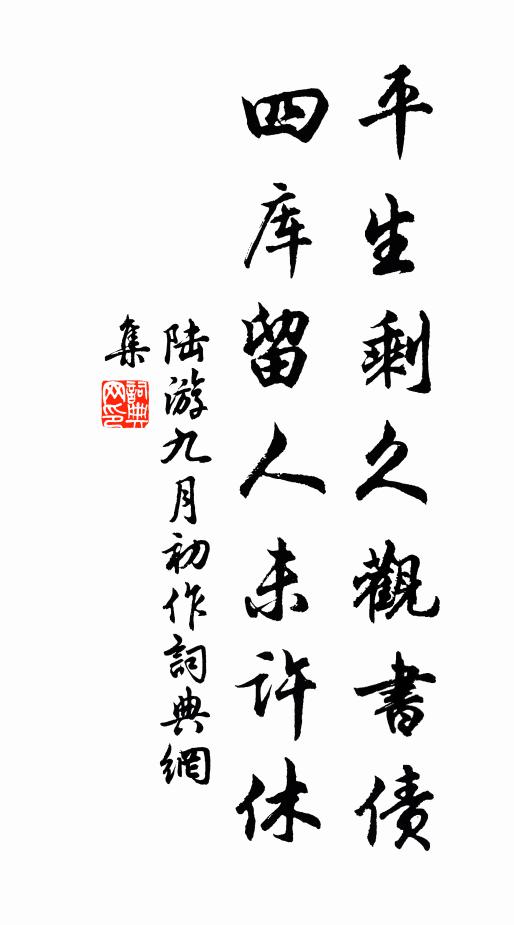 平生剩久觀書債
四库留人未許休
陆游九月初作詞典網
集
詞典
网印